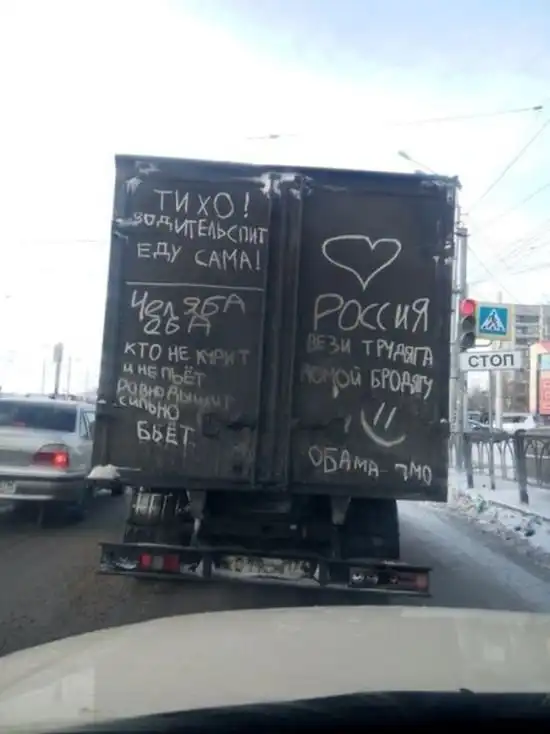 ТИХО!
ВОДИТЕЛЬ СПИТ
ЕДУ САМА!
ЧЕЛЯБА
КТО НЕ КУРИТ
И НЕ ПЬЁТ
РОВНО ДЫШИТ
СИЛЬНО
БЬЁТ
РОССИЯ
ВЕЗИ ТРУДЯГА
ДОМОЙ БРОДЯГУ
ОБАМА-
СТОП